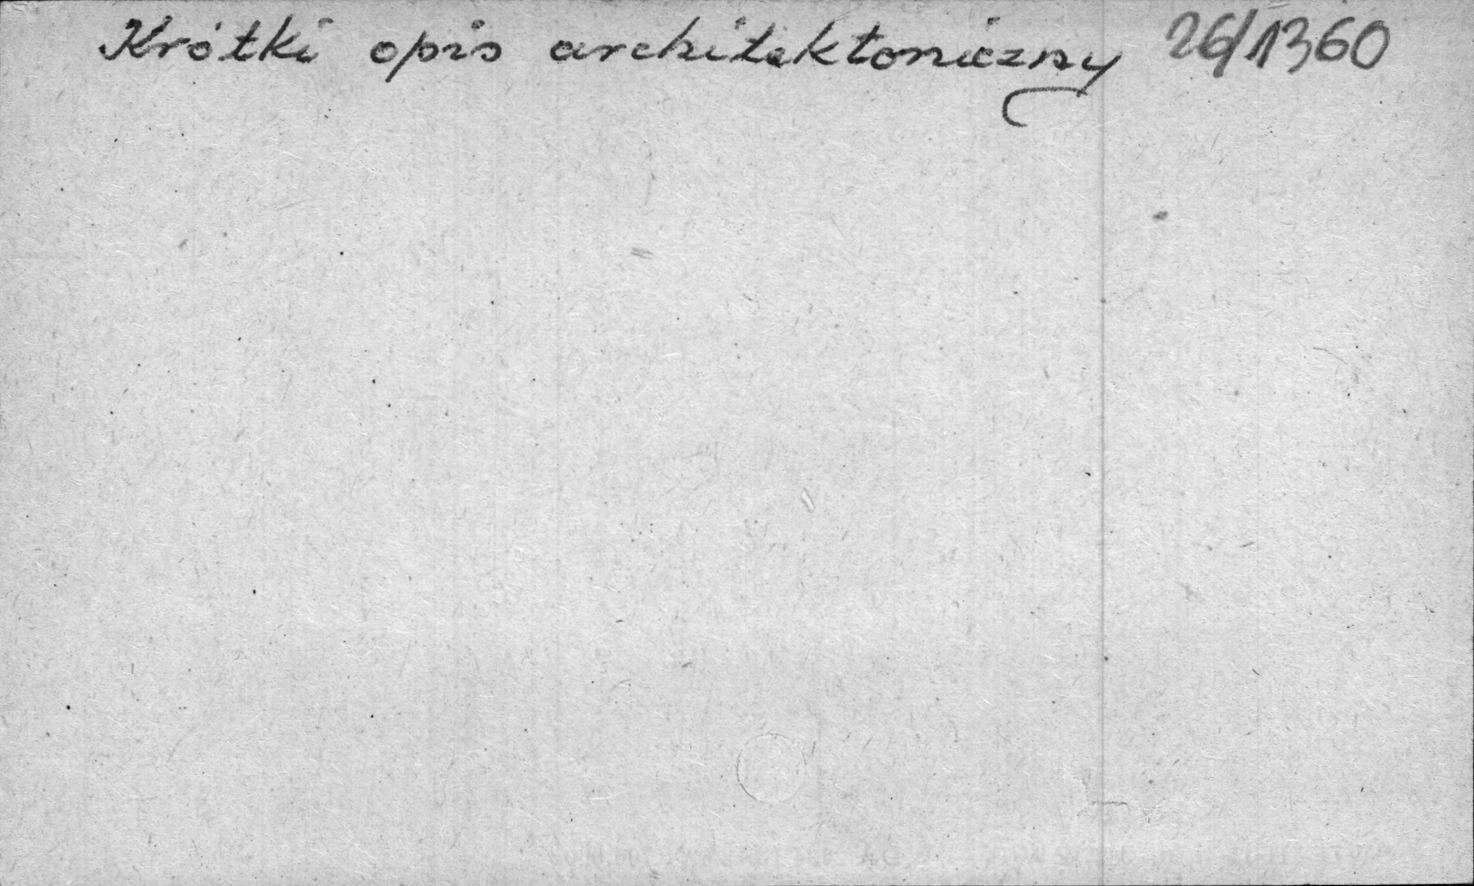 Krótki opis architektoniczny 26/1360